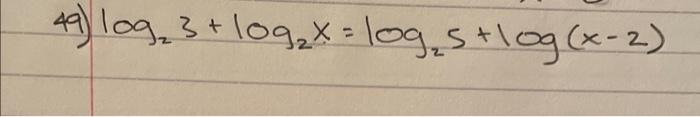 49) log₂ 3 + log₂ x = log₂ 5 + log(x-2)